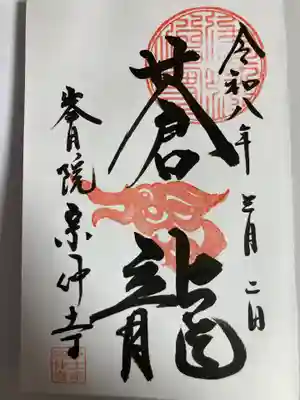 令和八年三月二日
蒼龍
峯月院宗仲寺